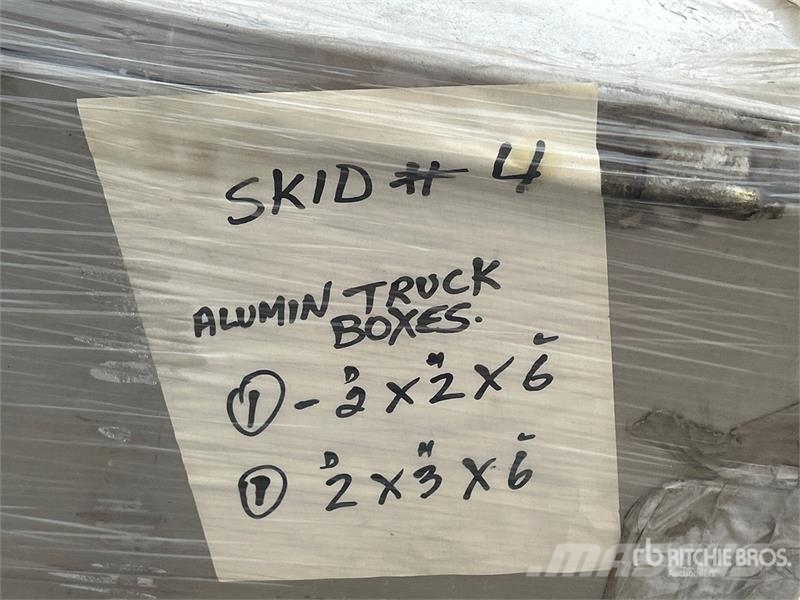 SKID # 4
ALUMIN TRUCK
BOXES.
① - 2 X 2 X 6
D H L
① 2 X 3 X 6
D H L
RITCHIE BROS.
Auctioneers